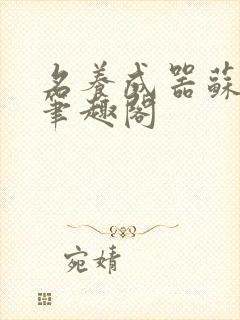 名養成器蘇
筆趣閣
宛婧